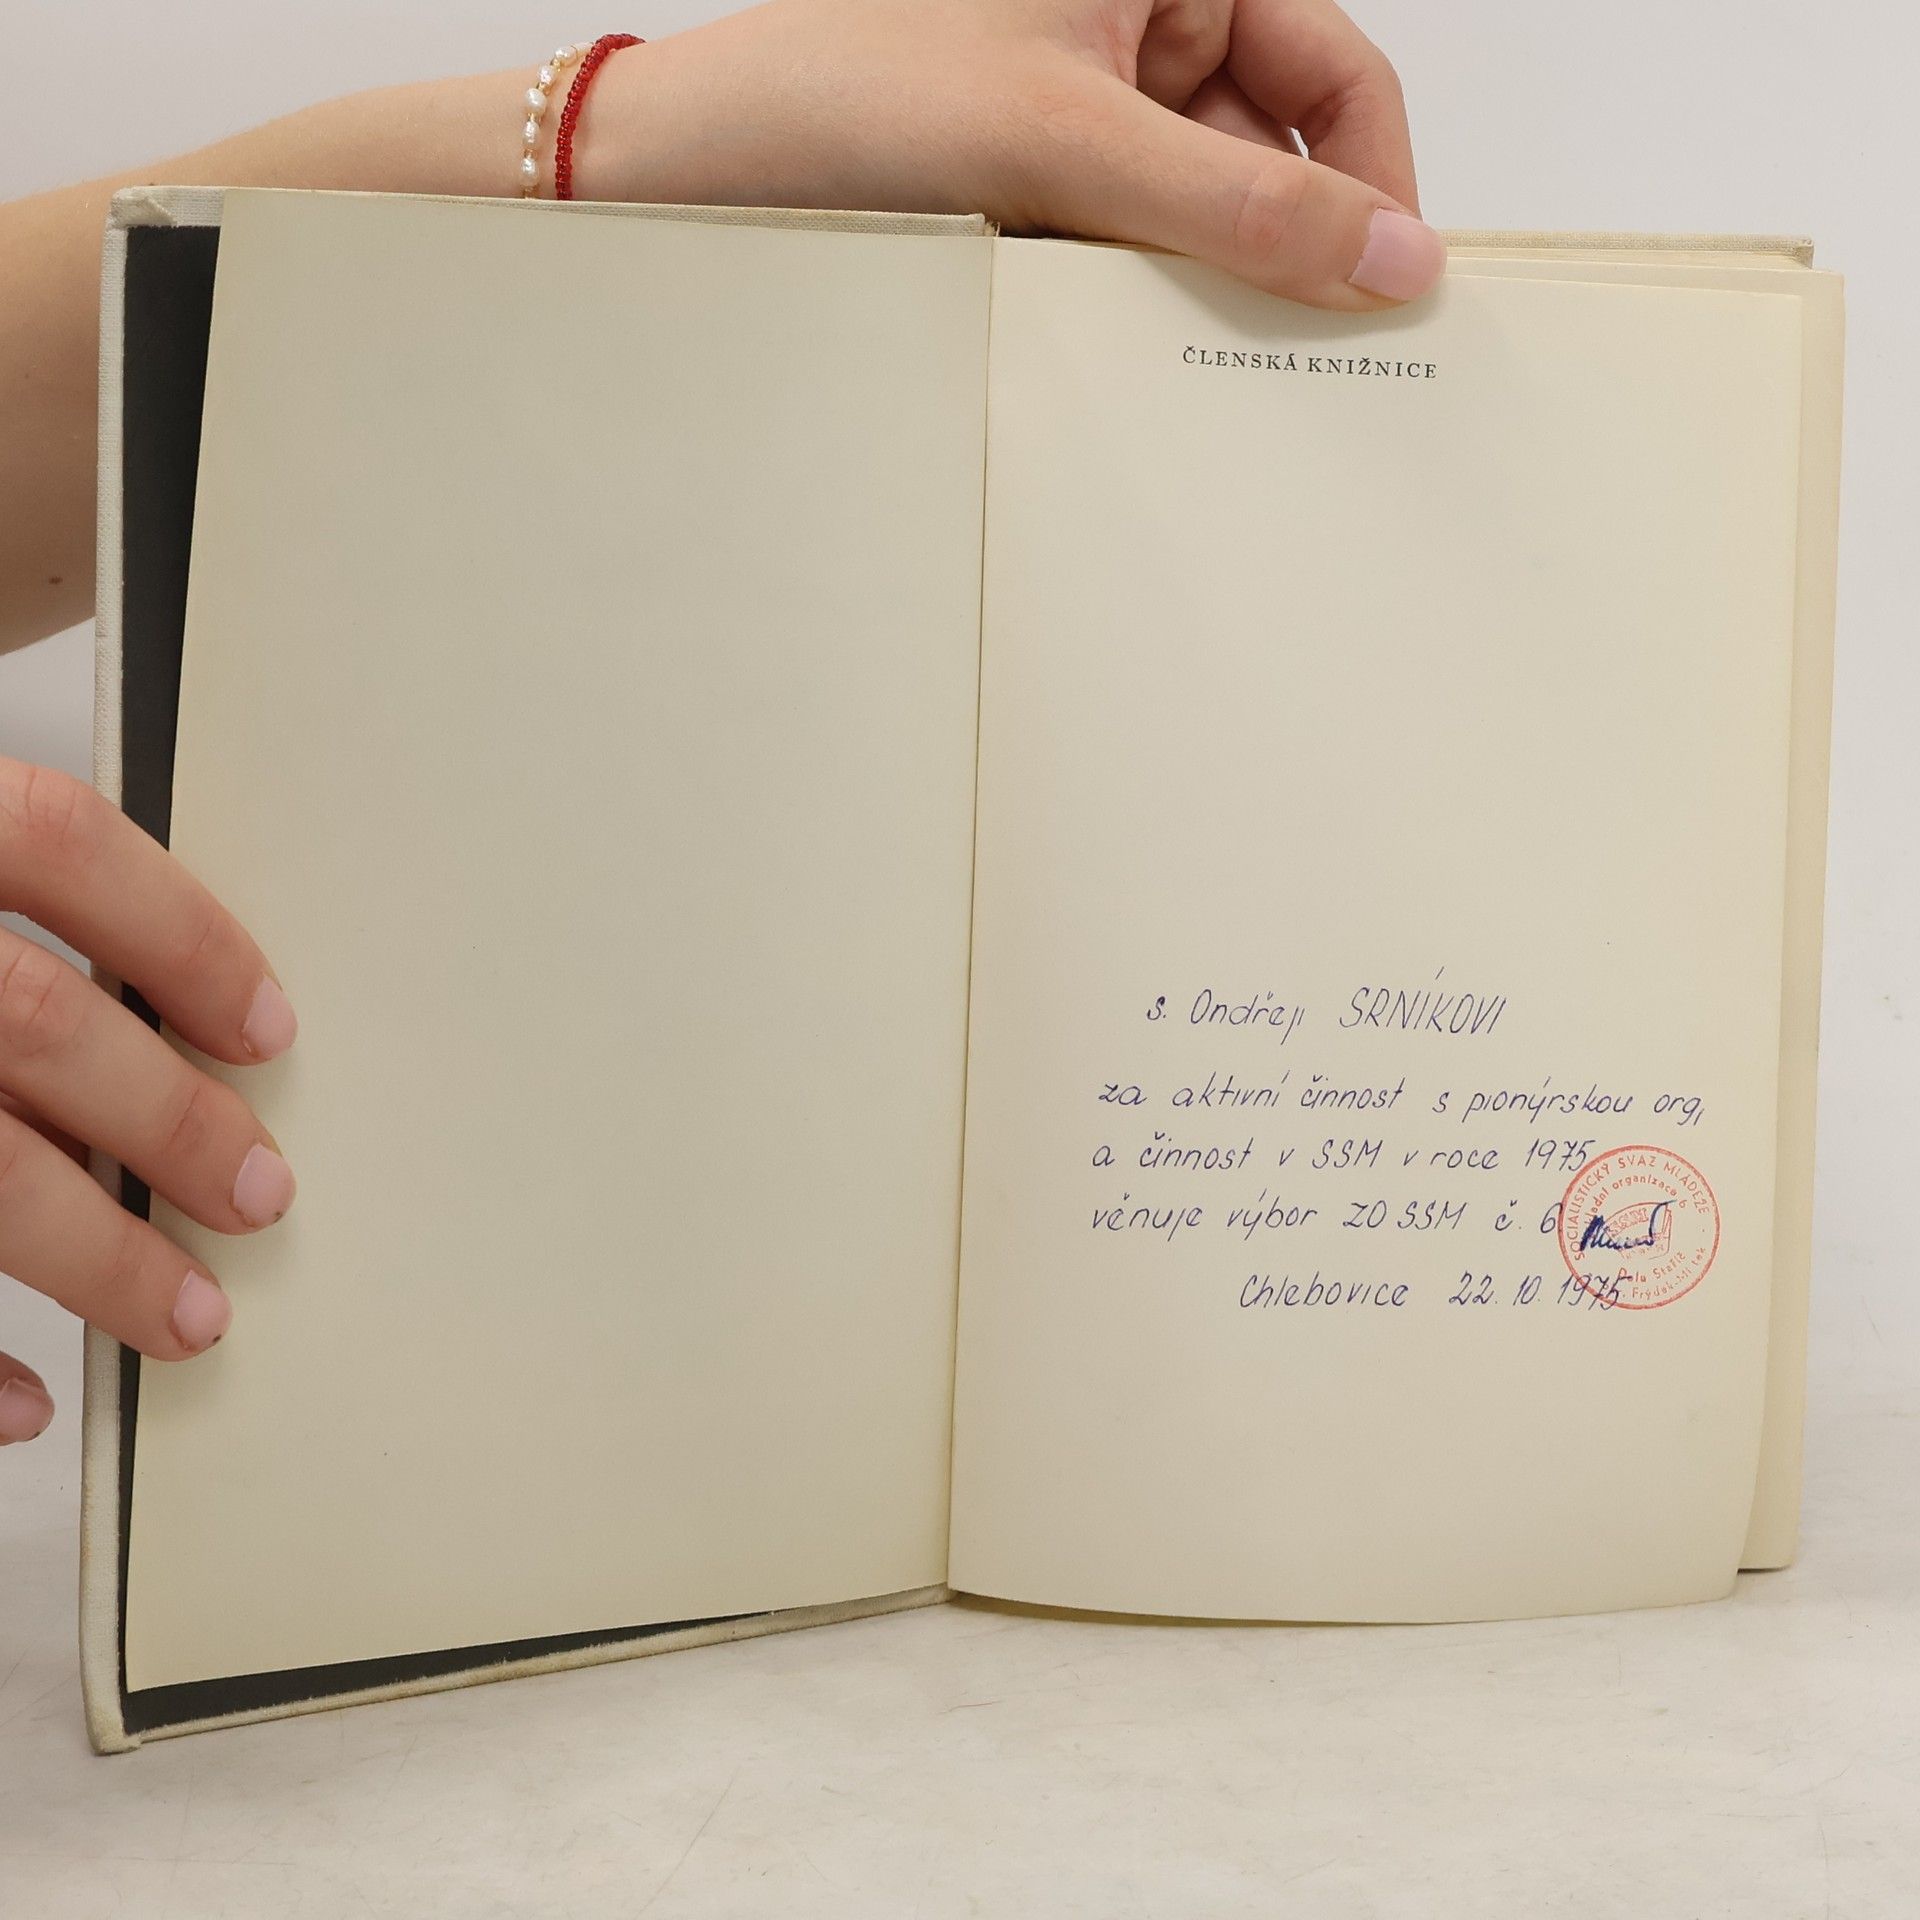 ČLENSKÁ KNIŽNICE
s. Ondřeji SRNÍKOVI
za aktivní činnost s pionýrskou org,
a činnost v SSM v roce 1975
věnuje výbor ZO SSM č. 6
Chlebovice 22. 10. 1975
SOCIALISTICKÝ SVAZ MLÁDEŽE
základní organizace 6
SSM
Staříč
Frýdek-Místek